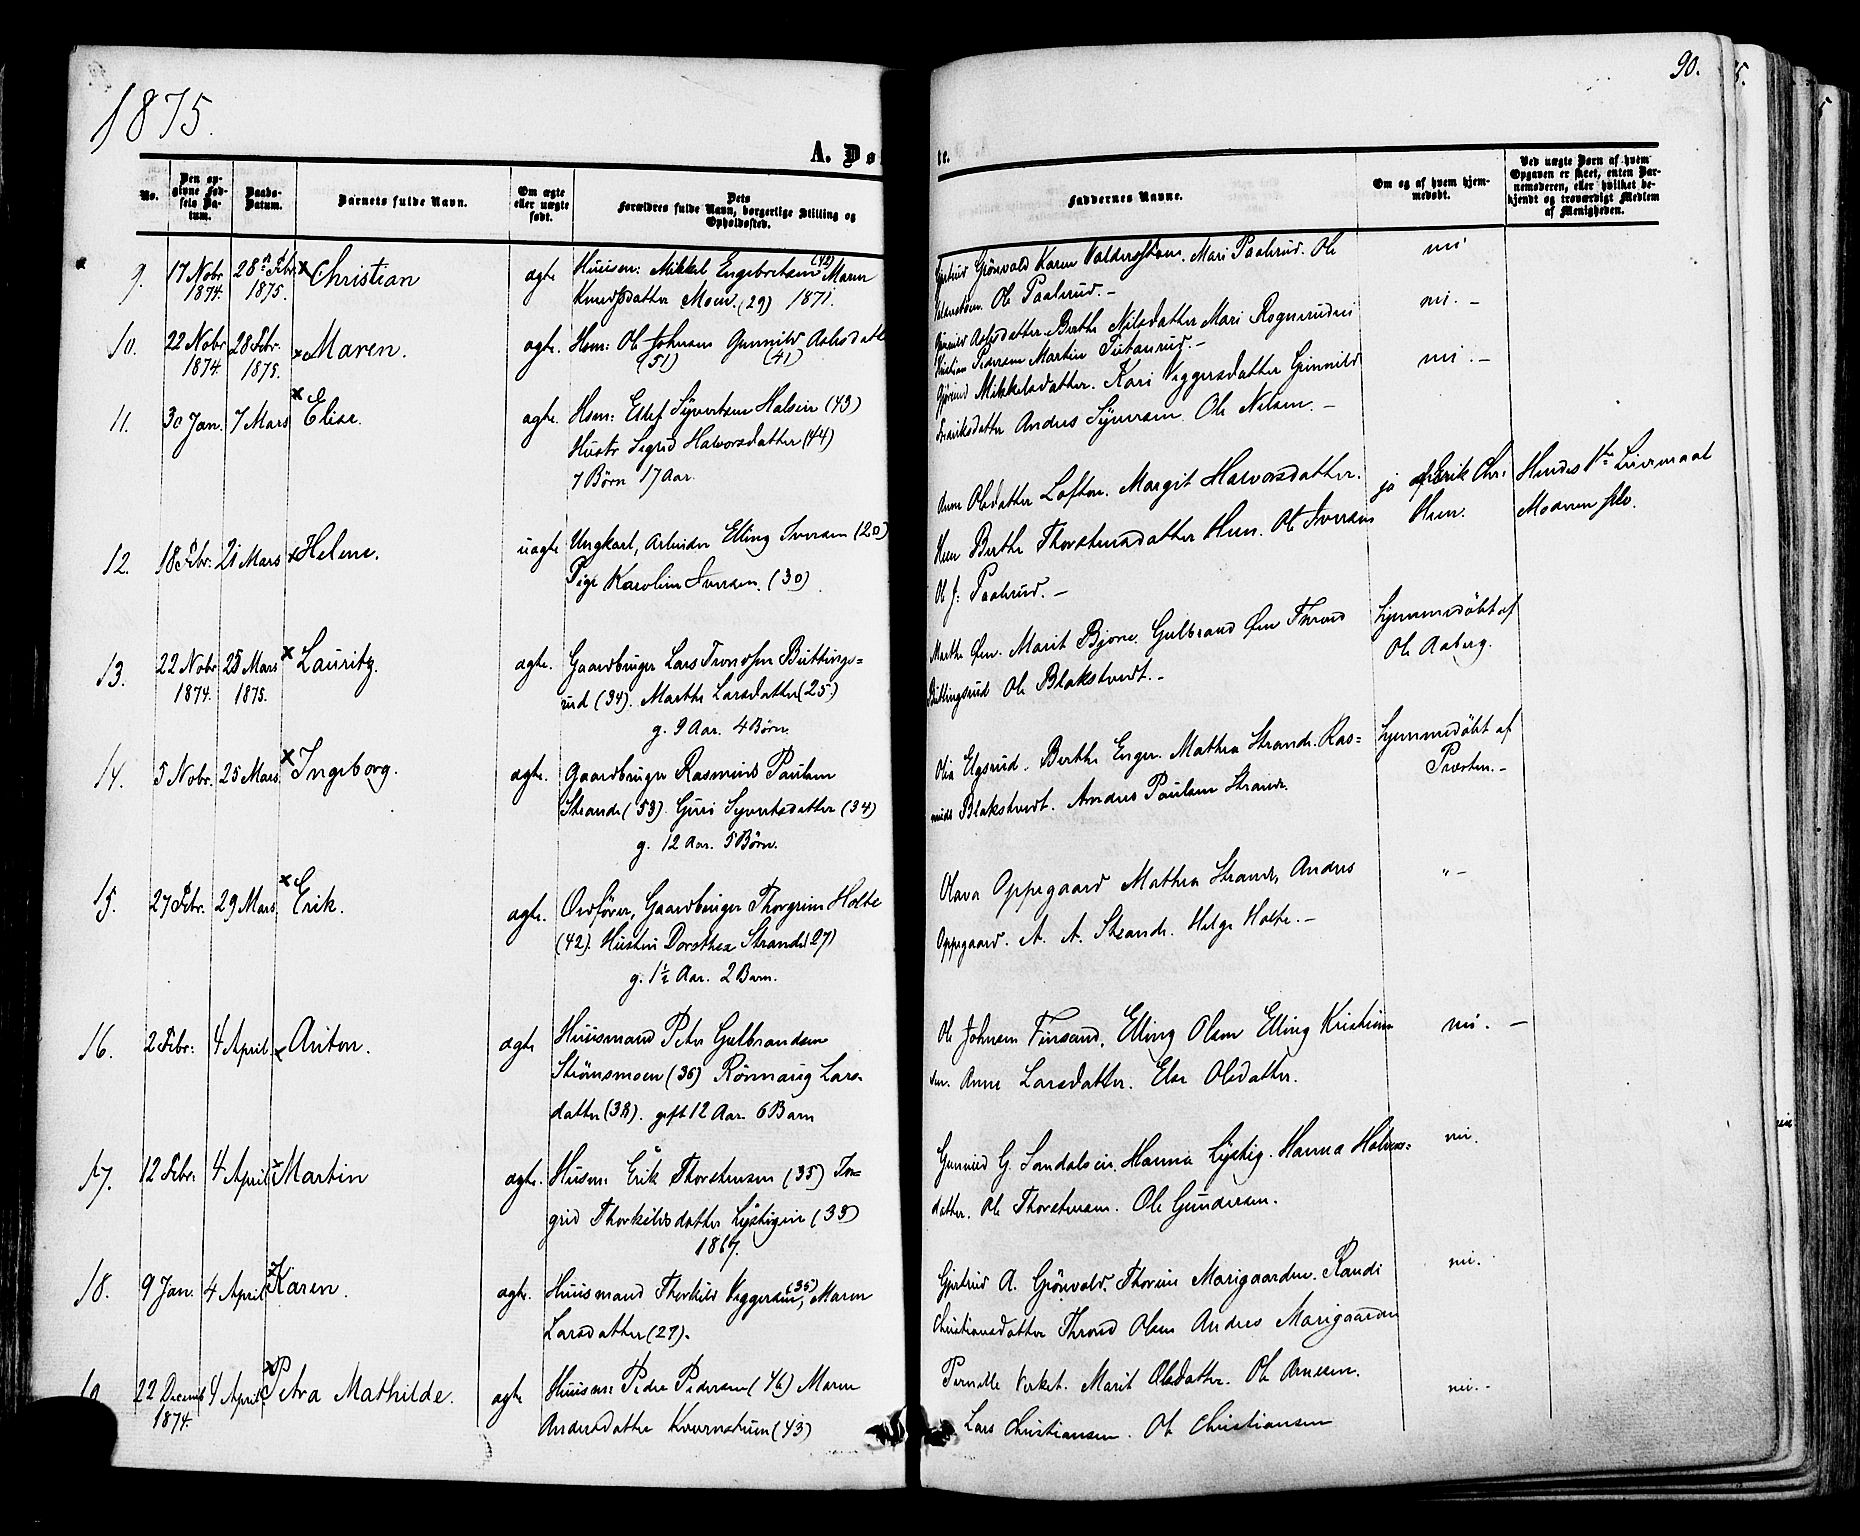 90.
1875.
A. Dø
te.
No.
Den op-
givne Fød-
sels Da-
tum.
Daabs-
Datum.
Barnets fulde Navn.
Om ægte
eller uægte
født.
Dets
Forældres fulde Navn, borgerlige Stilling og
Opholdssted.
Faddernes Navne.
Om og af hvem hjem-
medøbt.
Ved uægte Børn af hvem
Opgaven er skeet, enten Bar-
nemoderen, eller hvilket be-
kjendt og troværdigt Medlem
af Menigheden.
9. 17 Nobr 28 Febr × Christian ægte Huusm: Mikkel Engebretsen (42) Maren
1874. 1875. Knudsdatter Moen (29) 1871.
Gjertrud Grönvold Karen Mari Paalsrud. Ole nei
Ole Paalsrud. –
10. 22 Nobr 28 Febr. × Maren. ægte. Hsm: Ole Johnsen Gunnild
1874. 1875. (51) (41)
Berthe Nilsdatter Mari nei. –
Kristian Pedersen Martin –
11. 30 Jan. 7 Mars × Elise. ægte. Hsm: Ellef Syvertsen (43)
Hustr Sigrid Halvorsdatter (44)
7 Børn 17 Aar.
Mikkelsdatter. Kari Veggersdatter Gunnild nei. –
Fredriksdatter Andres Syversen. Ole Nilsen. –
12. 18 Febr: 21 Mars × Helene. uægte Ungkarl, Arbeider Elling Iversen (20)
Pige Karoline Iversen. (30)
Anne Olsdatter Loften. Margit Halvorsdatter. ja af Erik Chr: Hendes 1ste Leiermaal
Hen Berthe Thorstensdatter Hen. Ole Iversen Hen. Moderen selv.
Ole J: Paalsrud. –
13. 22 Nobr 25 Mars × Lauritz. ægte. Gaardbruger Lars Trondsen Buttings-
1874. 1875. rud (34). Marthe Larsdatter (25)
g. 9 Aar. 4 Børn.
Marthe Øen. Marit Bjore. Gulbrand Øen Thrond hjemmedøbt af
Buttingsrud Ole Blakstvedt. – Ole Aaberg.
14. 5 Nobr. 25 Mars × Ingeborg. ægte. Gaardbruger Rasmus Paulsen
Strande (53). Guri Syvertsdatter (34)
g. 12 Aar. 5 Børn.
Olia Elgsrud. Berthe Enger. Mathea Strande. Ras- hjemmedøbt af
mus Blakstvedt. Andres Paulsen Strande. Præsten. –
15. 27 Febr. 29 Mars × Erik. ægte. Ordfører, Gaardbruger Thorgrim Holte
(42). Hustru Dorothea Strande (27)
g. 1½ Aar. 2 Barn.
Olava Oppegaard Mathea Strande, Andres „ –
Oppegaard. A. A. Strande. Helge Holte. –
16. 2 Febr: 4 April × Anton. ægte Huusmand Peter Gulbrandsen
Strönsmoen (36) Rönnaug Lars-
datter (38). gift 12 Aar 6 Barn
Ole Johnsen Finsand, Elling Olsen Elling Kristian- nei. –
sen. Anne Larsdatter. Else Olsdatter.
17. 12 Febr: 4 April × Martin ægte. Huusm: Erik Thorstensen (35) In-
grid Thorkildsdatter Lystigeie (33)
1867.
Gunnild G. Hanna Lystig. Hanna Halvors- nei.
datter. Ole Thorstensen. Ole Gundersen.
18. 9 Jan. 4 April × Karen. ægte. Huusmand Thorkild Veggersen (35), Maren
Larsdatter (27).
Gjertrud A. Grönvold. Marigaarden. Randi nei.
Christiansdatter Thrond Olsen Andres Marigaarden
22 Decemb 4 April × Petra Mathilde. ægte Huusm: Peder Pedersen (46) Maren
1874. Andersdatter (43)
Pernelle Verket. Marit Olsdatter. Ole nei. –
Lars Christiansen. Ole Christiansen